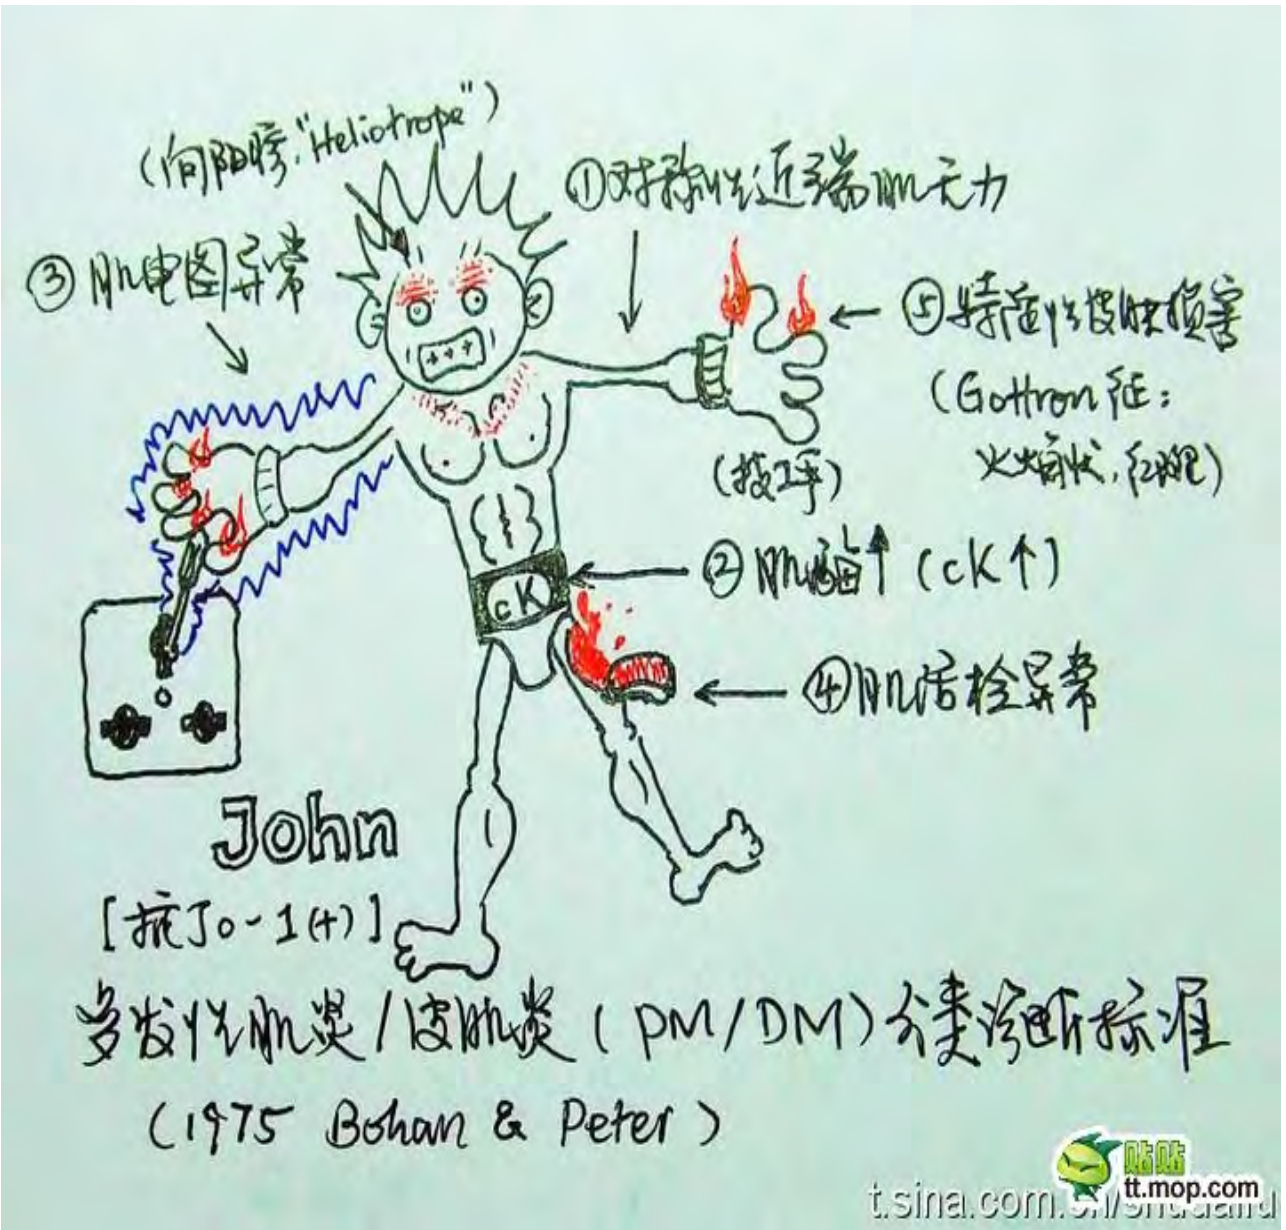 (向阳疹,"Heliotrope")
①对称性近端肌无力
③肌电图异常
⑤特征性皮肤损害
(Gottron征:
火焰状,红斑)
(技工手)
②肌酶↑(CK↑)
CK
④肌活检异常
John
[抗Jo-1(+)]
多发性肌炎/皮肌炎(PM/DM)分类诊断标准
(1975 Bohan & Peter)
贴贴
tt.mop.com
t.sina.com.cn/